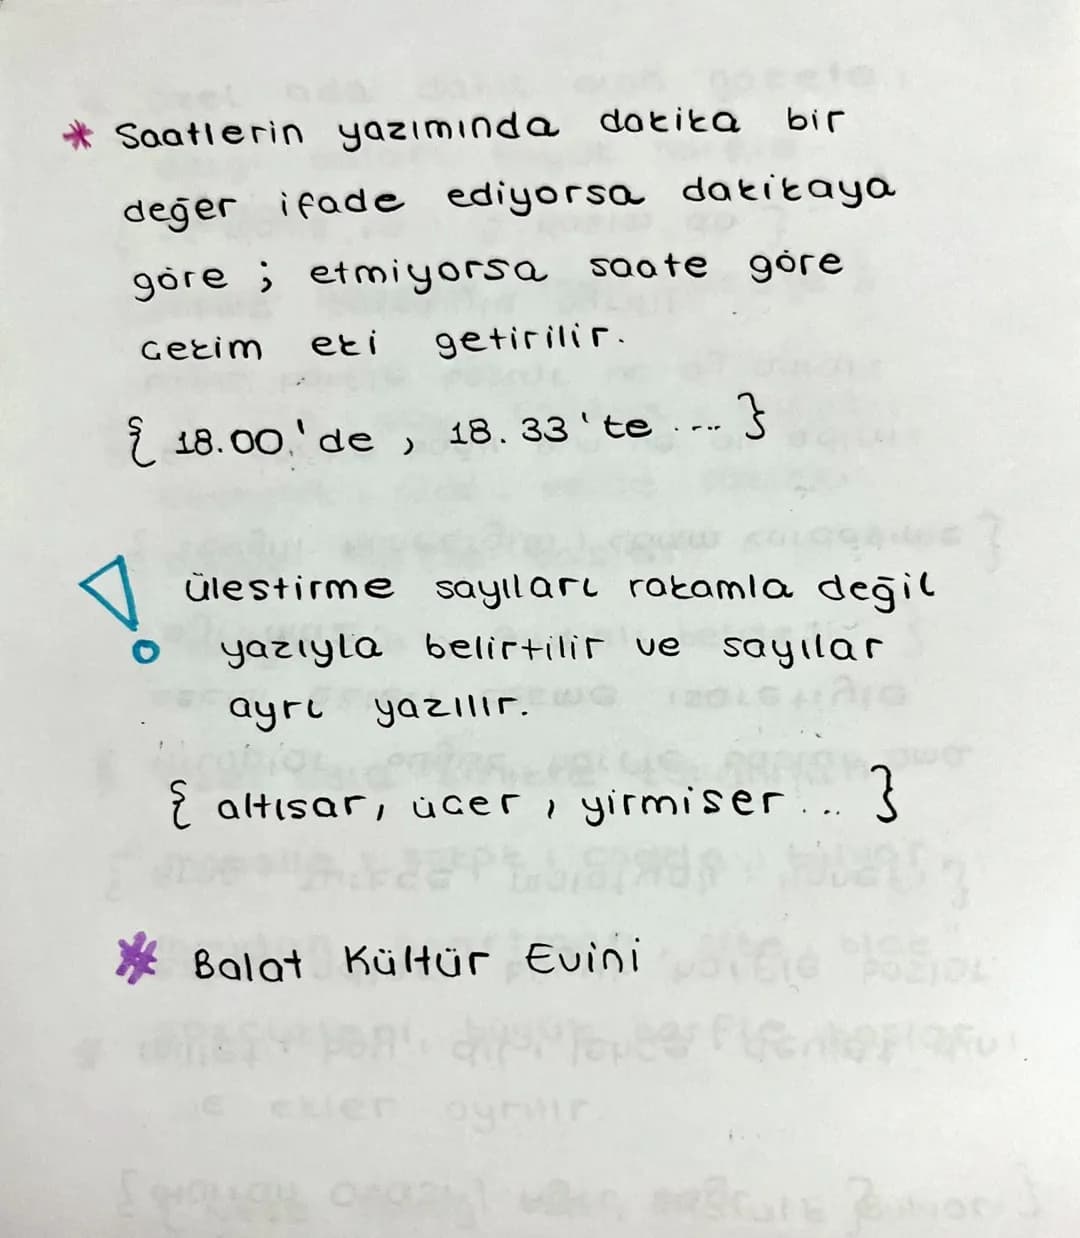 * Saatlerin yazımında dakika bir
değer ifade ediyorsa dakikaya
göre ; etmiyorsa saate göre
Gekim eki getirilir.
{ 18.00.'de , 18.33'te .... }
ülestirme sayıları rakamla değil
yazıyla belirtilir ve sayılar
ayrı yazılır.
{ altısar, ücer , yirmiser... }
* Balat Kültür Evini